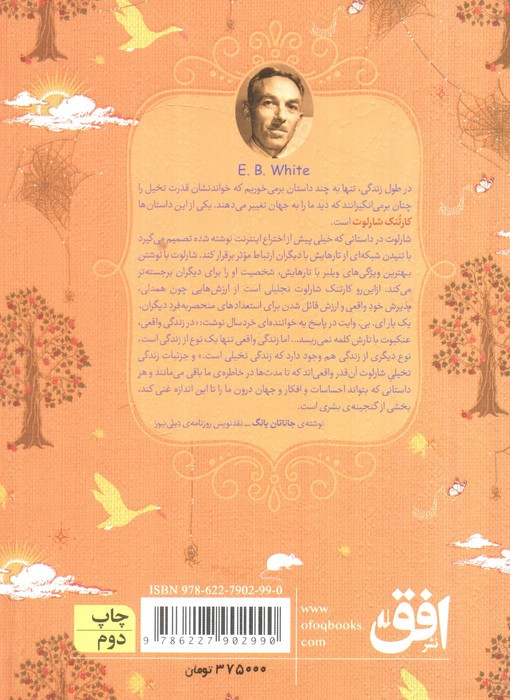 E. B. White
در طول زندگی، تنها به چند داستان برمی‌خوریم که خواندنشان قدرت تخیل را
چنان برمی‌انگیزانند که دید ما را به جهان تغییر می‌دهند. یکی از این داستان‌ها
کارتُنک شارلوت است.
شارلوت در داستانی که خیلی پیش از اختراع اینترنت نوشته شده تصمیم می‌گیرد
با تنیدن شبکه‌ای از تارهایش با دیگران ارتباط مؤثر برقرار کند. شارلوت با نوشتن
بهترین ویژگی‌های ویلبر با تارهایش، شخصیت او را برای دیگران برجسته‌تر
می‌کند. ازاین‌رو کارتنک شارلوت تجلیلی است از ارزش‌هایی چون همدلی،
پذیرش خودِ واقعی و ارزش قائل شدن برای استعدادهای منحصربه‌فرد دیگران.
یک بار ای. بی. وایت در پاسخ به خواننده‌ای خردسال نوشت: «در زندگی واقعی،
عنکبوت با تارش کلمه نمی‌ریسد... اما زندگی واقعی تنها یک نوع از زندگی است.
نوع دیگری از زندگی هم وجود دارد که زندگی تخیلی است.» و جزئیات زندگی
تخیلی شارلوت آن‌قدر واقعی‌اند که تا مدت‌ها در خاطره‌ی ما باقی می‌مانند و هر
داستانی که بتواند احساسات و افکار و جهان درون ما را تا این اندازه غنی کند،
بخشی از گنجینه‌ی بشری است.
نوشته‌ی جاناتان یانگ ــ نقدنویس روزنامه‌ی دِیلی‌نیوز
ISBN 978-622-7902-99-0
چاپ
دوم
9 786227 902990
۳۷۵۰۰۰ تومان
www.
ofoqbooks.
com
نشر
افق